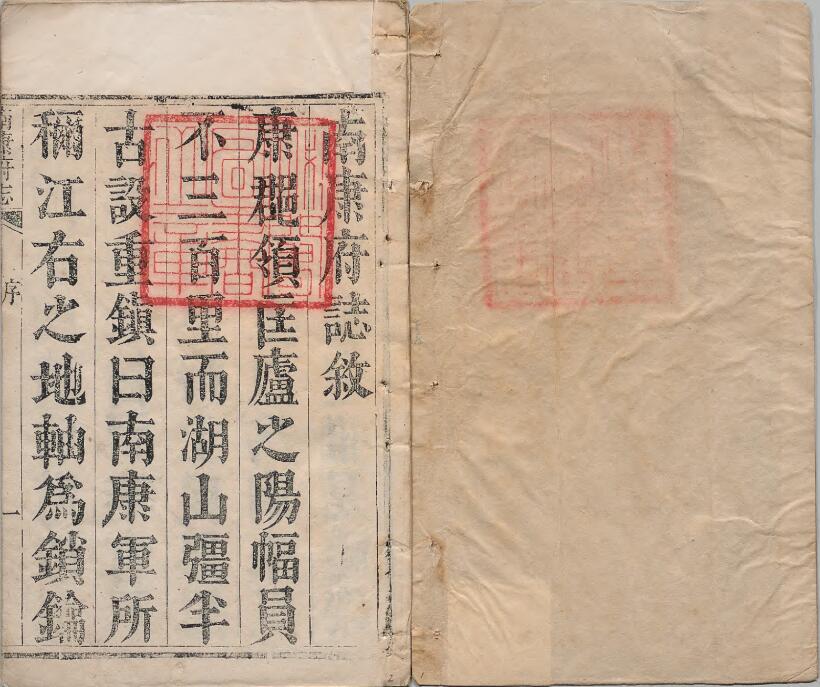 南康府誌敘
康郡領匡廬之陽幅員
不三百里而湖山彊半
古設重鎮曰南康軍所
稱江右之地軸為鎖鑰
南康府志
序
一